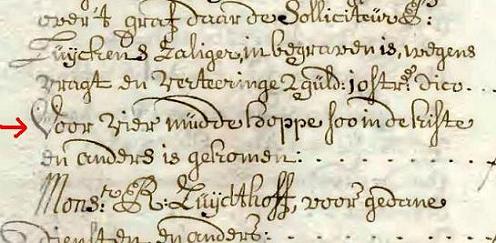 over't graf daar de Solliciteur E:
Tuijckens Zaliger, in begraven is, wegens
vragt en verteeringe 2 guld: 10 str: dico...
Voor vier mudde hoppe soo in de kiste
en anders is gekomen: . . . . . .
Mons:r R: Zuijdthoff, voor gedane
diensten en anders: